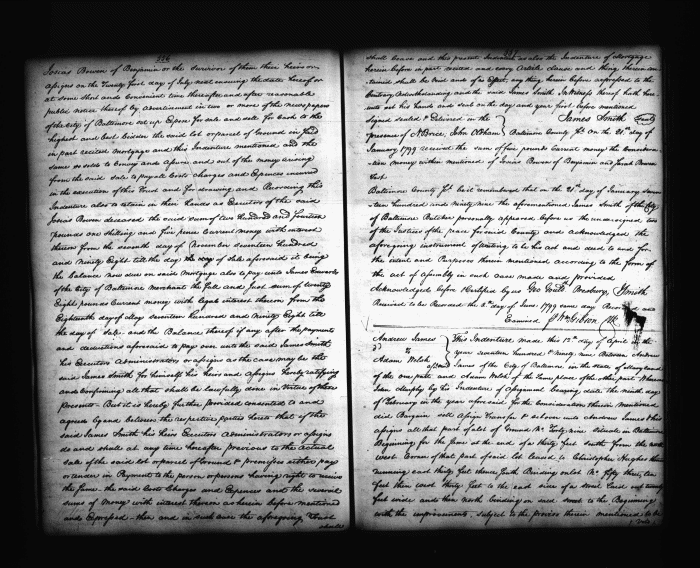 226
Josias Bowen of Benjamin or the survivor of them their heirs or
assigns on the Twenty first day of July next ensuing the date hereof or
at some short and convenient time thereafter and after reasonable
public notice thereof by advertisement in two or more of the news papers
of the City of Baltimore set up Expose for sale and sell for Cash to the
highest and best bidder the said lot or parcel of Ground in said
in part recited mortgage and this Indenture mentioned and the
same so sold to Convey and assure and out of the money arising
from the said sale to pay all Costs charges and Expences incurred
in the execution of this Trust and for drawing and Recording this
Indenture also to retain in their hands as Executors of the said
Josias Bowen deceased the said sum of two hundred and fourteen
pounds one shilling and five pence Current money with interest
thereon from the seventh day of November seventeen hundred
and Ninety Eight till the day of sale aforesaid it being
the balance now due on said Mortgage also to pay unto James Edwards
of the City of Baltimore Merchant the full and Just sum of twenty
Eight pounds Current money with legal interest thereon from the
Eighteenth day of May seventeen hundred and Ninety Eight till
the day of sale and the Balance thereof if any after the payments
and deductions aforesaid to pay over unto the said James Smith
his Executors Administrators or assigns as the case may be the
said James Smith for himself his heirs and Assigns hereby ratifying
and Confirming all that shall be lawfully done in Virtue of these
presents - But it is hereby further provided consented to and
agreed by and between the respective parties hereto that if the
said James Smith his heirs Executors Administrators or assigns
do and shall at any time hereafter previous to the actual
sale of the said lot or parcel of Ground & premises either pay
or tender in Payment to the person or persons having right to receive
the same the said Costs Charges and Expences and the several
sums of Money with interest thereon as herein before mentioned
and Expressed - then and in such case the aforegoing Trust
shall
227
shall cease and the present Indenture as also the Indenture of Mortgage
herein before in part recited and every Article clause and thing therein con
tained shall be void and of no Effect any thing herein before expressed to the
Contrary Notwithstanding and the said James Smith In Witness hereof hath here
unto set his hands and seal on the day and year first before mentioned
Signed Sealed & Delivered in the James Smith Seal
presence of N Brice, John Oldham Baltimore County Ss. on the 21st day of
January 1799 received the sum of five pounds Current money the Consideration
money within mentioned of Josias Bowen of Benjamin and Jacob Bowen
Test
Baltimore County Ss. be it remembered that on the 21st day of January seven
teen hundred and ninety nine the aforementioned James Smith of the City
of Baltimore Butcher personally appeared before us the undersigned two
of the Justices of the peace for said County and acknowledged the
aforegoing instrument of writing to be his act and deed to and for
the intent and Purposes therein mentioned according to the form of
the act of Assembly in such case made and provided
Acknowledged before & Certified by us Geo Gould Presbury, J Smith
Received to be Recorded the 6th day of June 1799 same day Recorded and
Examined Wm Gibson Clk
Andrew James
to
Adam Welsh
This Indenture made this 12th day of April in the
year seventeen hundred & ninety nine Between Andrew
James of the City of Baltimore in the state of Maryland
of the one part and Adam Welsh of the same place of the other part Whereas
by his Indenture of Assignment bearing date the ninth day
of February in the year aforesaid for the Consideration therein Mentioned
did Bargain sell Assign Transfer & set over unto Andrew James & his
assigns all that part of a lot of Ground No. forty nine situate in Baltimore
Beginning for the same at the end of thirty feet South from the north
west Corner of that part of said lot leased to Christopher Hughes thence
running east thirty feet thence South Binding on lot No. fifty three ten
feet then west thirty feet to the end line of a small lot twenty
feet wide and then north binding on said street to the Beginning
with the improvements subject to the proviso therein mentioned to be